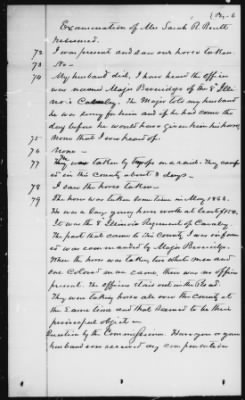 (Pg. 6
Examination of Mrs Sarah R. Britt
resumed.
72 I was present and saw our horse taken.
73 No —
74 My husband did. I have heard the officer
was named Major Beveridge of the 8 Illi
nois Cavalry. The Major told my husband
he was sorry for him and if he had come the
day before he would have given him his horse
75 None that I ever heard of.
76 None —
77 They was taken by troops on a raid. They camp
ed in this county about 3 days —
78 I saw the horse taken —
79 The horse was taken some time in May 1863.
He was a bay grey horse worth at least $150.
It was the 8 Illinois Regiment of Cavalry
The part that came to this County I was inform
ed was commanded by Major Beveridge.
When the horse was taken two white men and
one Colored man came, there was no officer
present. The officer staid out in the Road.
They were taking horses all over the county at
the same time and that seemed to be their
principal object in
Question by the Commissioner. Have you or your
husband ever received any compensation